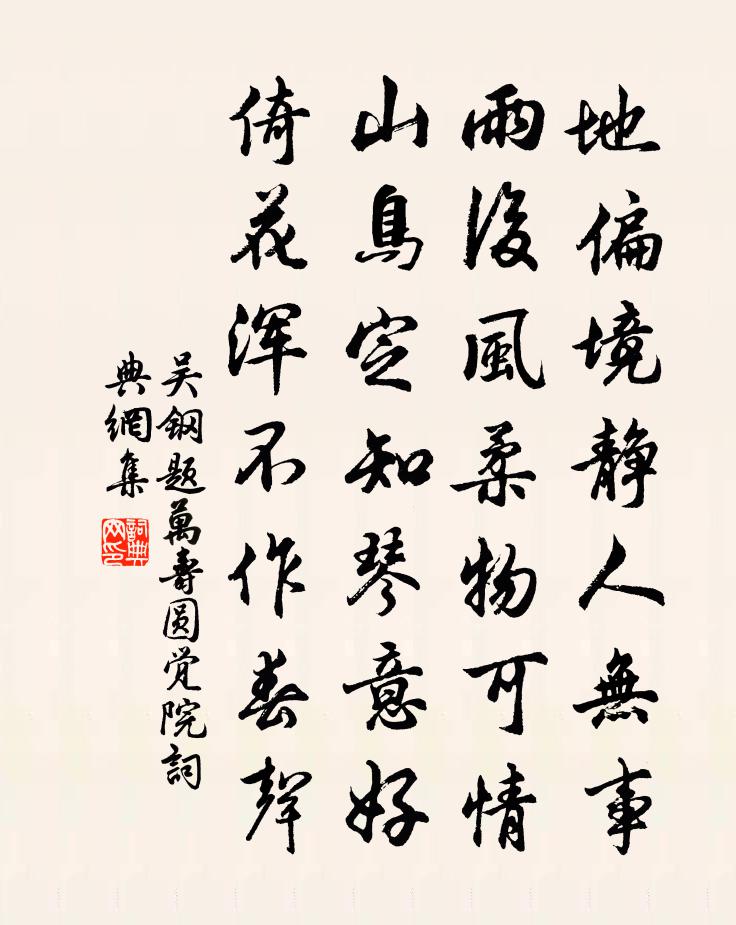 地偏境静人無事
雨後風柔物可情
山鳥定知琴意好
倚花浑不作春聲
吴鋼题萬壽圆觉院詞
典網集
詞典
网印